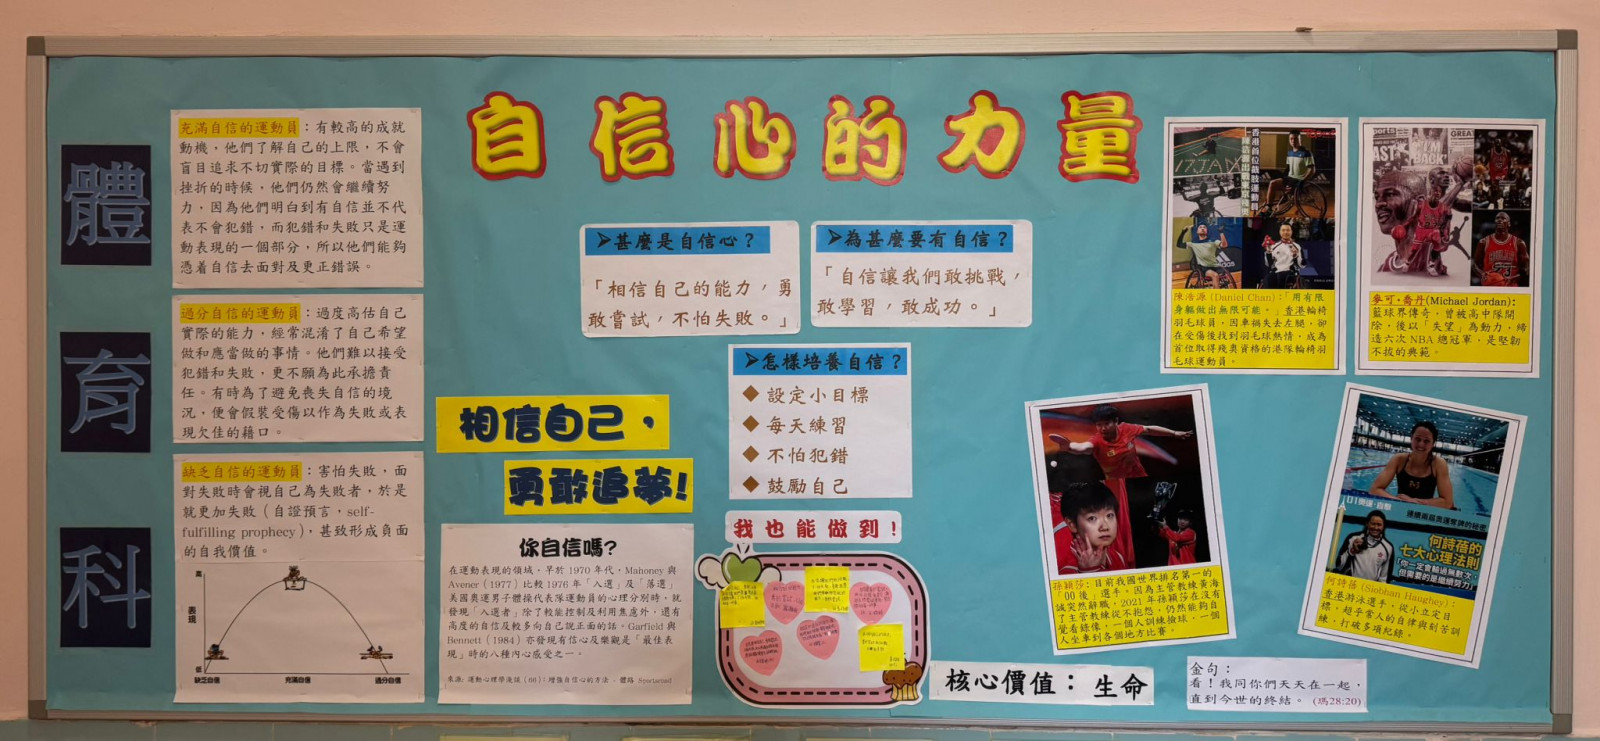 自信心的力量
體
育
科
充滿自信的運動員：有較高的成就
動機，他們了解自己的上限，不會
盲目追求不切實際的目標。當遇到
挫折的時候，他們仍然會繼續努
力，因為他們明白到有自信並不代
表不會犯錯，而犯錯和失敗只是運
動表現的一個部分，所以他們能夠
憑着自信去面對及更正錯誤。
過分自信的運動員：過度高估自己
實際的能力，經常混淆了自己希望
做和應當做的事情。他們難以接受
犯錯和失敗，更不願為此承擔責
任。有時為了避免喪失自信的境
況，便會假裝受傷以作為失敗或表
現欠佳的藉口。
缺乏自信的運動員：害怕失敗，面
對失敗時會視自己為失敗者，於是
就更加失敗（自證預言，self-
fulfilling prophecy），甚致形成負面
的自我價值。
高
表現
低
缺乏自信
充滿自信
過分自信
➢甚麼是自信心？
「相信自己的能力，勇
敢嘗試，不怕失敗。」
➢為甚麼要有自信？
「自信讓我們敢挑戰，
敢學習，敢成功。」
➢怎樣培養自信？
◆ 設定小目標
◆ 每天練習
◆ 不怕犯錯
◆ 鼓勵自己
相信自己，
勇敢追夢!
你自信嗎?
在運動表現的領域，早於 1970 年代，Mahoney 與
Avener（1977）比較 1976 年「入選」及「落選」
美國奧運男子體操代表隊運動員的心理分別時，就
發現「入選者」除了較能控制及利用焦慮外，還有
高度的自信及較多向自己說正面的話。Garfield 與
Bennett（1984）亦發現有信心及樂觀是「最佳表
現」時的八種內心感受之一。
來源: 運動心理學漫談（66）：增強自信心的方法 – 體路 Sportsroad
我也能做到！
香港首位截肢運動員
陳浩源 (Daniel Chan)：「用有限
身軀做出無限可能。」香港輪椅
羽毛球員，因車禍失去左腿，卻
在受傷後找到羽毛球熱情，成為
首位取得殘奧資格的港隊輪椅羽
毛球運動員。
I'M BACK
麥可·喬丹(Michael Jordan):
籃球界傳奇，曾被高中隊開
除，後以「失望」為動力，締
造六次 NBA 總冠軍，是堅韌
不拔的典範。
孫穎莎：目前我國世界排名第一的
「00後」選手。因為主管教練黃海
誠突然辭職，2021年孫穎莎在沒有
了主管教練從不抱怨，仍然能夠自
覺看錄像，一個人訓練撿球，一個
人坐車到各個地方比賽。
連續兩屆奧運奪牌的秘密
何詩蓓的
七大心理法則
「你一定會輸過無數次，
但需要的是繼續努力」
何詩蓓 (Siobhan Haughey):
香港游泳選手，從小立定目
標，超乎常人的自律與刻苦訓
練，打破多項紀錄。
核心價值： 生命
金句：
看！我同你們天天在一起，
直到今世的終結。 (瑪28:20)